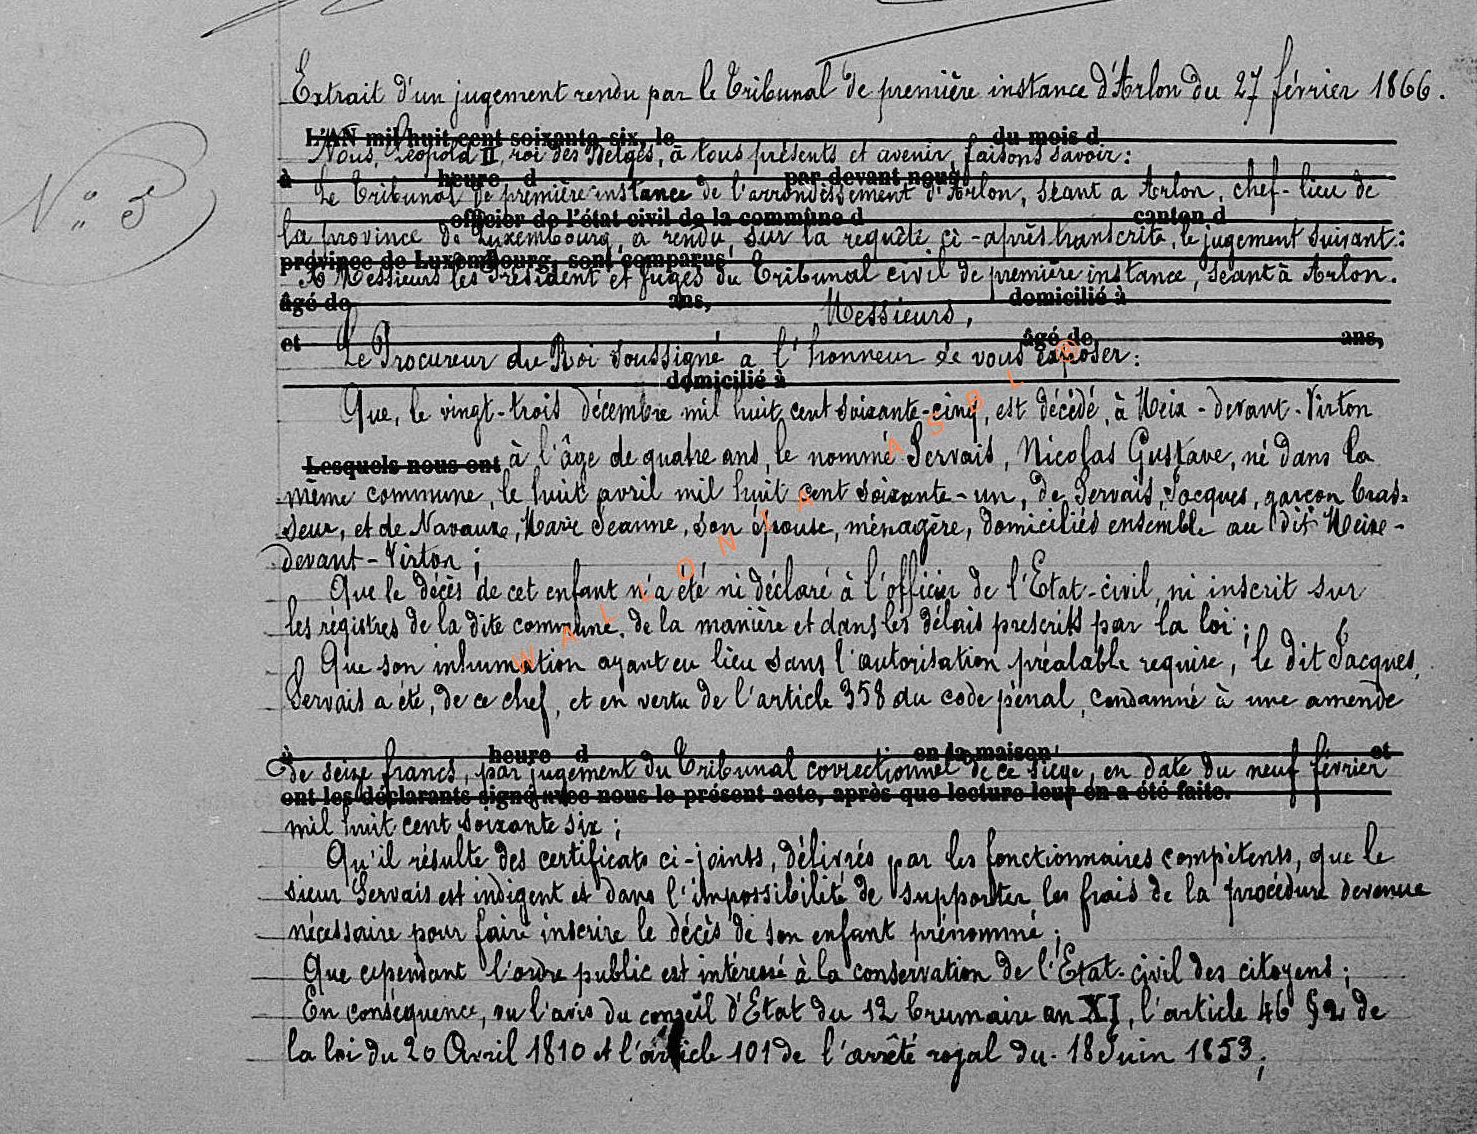 Extrait d'un jugement rendu par le Tribunal de première instance d'Arlon du 27 février 1866.
L'AN mil huit cent soixante-six, le du mois d
Nous, Léopold II, roi des Belges, à tous présents et avenir, faisons savoir:
à heure d par devant nous,
N° 5
Le Tribunal de première instance de l'arrondissement d'Arlon, séant a Arlon, chef-lieu de
officier de l'état civil de la commune d canton d
la province de Luxembourg, a rendu, sur la requête ci-après transcrite, le jugement suivant:
province de Luxembourg, sont comparus
A Messieurs les Président et Juges du Tribunal civil de première instance, séant à Arlon.
âgé de ans, domicilié à
Messieurs,
et âgé de ans,
Le Procureur du Roi soussigné a l'honneur de vous exposer:
domicilié à
Que, le vingt-trois décembre mil huit cent soixante-cinq, est décédé, à Meix-devant-Virton
Lesquels nous ont à l'âge de quatre ans, le nommé Servais, Nicolas Gustave, né dans la
même commune, le huit avril mil huit cent soixante-un, de Servais, Jacques, garçon bras=
seur, et de Navaux, Marie Jeanne, son épouse, ménagère, domiciliés ensemble au dit Meix-
devant-Virton;
Que le décès de cet enfant n'a été ni déclaré à l'officier de l'Etat-civil, ni inscrit sur
les régistres de la dite commune, de la manière et dans les délais prescrits par la loi;
Que son inhumation ayant eu lieu sans l'autorisation préalable requise, le dit Jacques
Servais a été, de ce chef, et en vertu de l'article 358 du code pénal, condamné à une amende
à heure d en la maison et
de seize francs, par jugement du Tribunal correctionnel de ce siège, en date du neuf février
ont les déclarants signé avec nous le présent acte, après que lecture leur en a été faite.
mil huit cent soixante six;
Qu'il résulte des certificats ci-joints, délivrés par les fonctionnaires compétents, que le
sieur Servais est indigent et dans l'impossibilité de supporter les frais de la procédure devenue
nécessaire pour faire inscrire le décès de son enfant prénommé;
Que cependant l'ordre public est intéressé à la conservation de l'Etat-civil des citoyens;
En conséquence, vu l'avis du conseil d'Etat du 12 brumaire an XI, l'article 46 § 2 de
la loi du 20 Avril 1810 et l'article 101 de l'arrêté royal du 18 Juin 1853;
WALLONIA ASBL ©